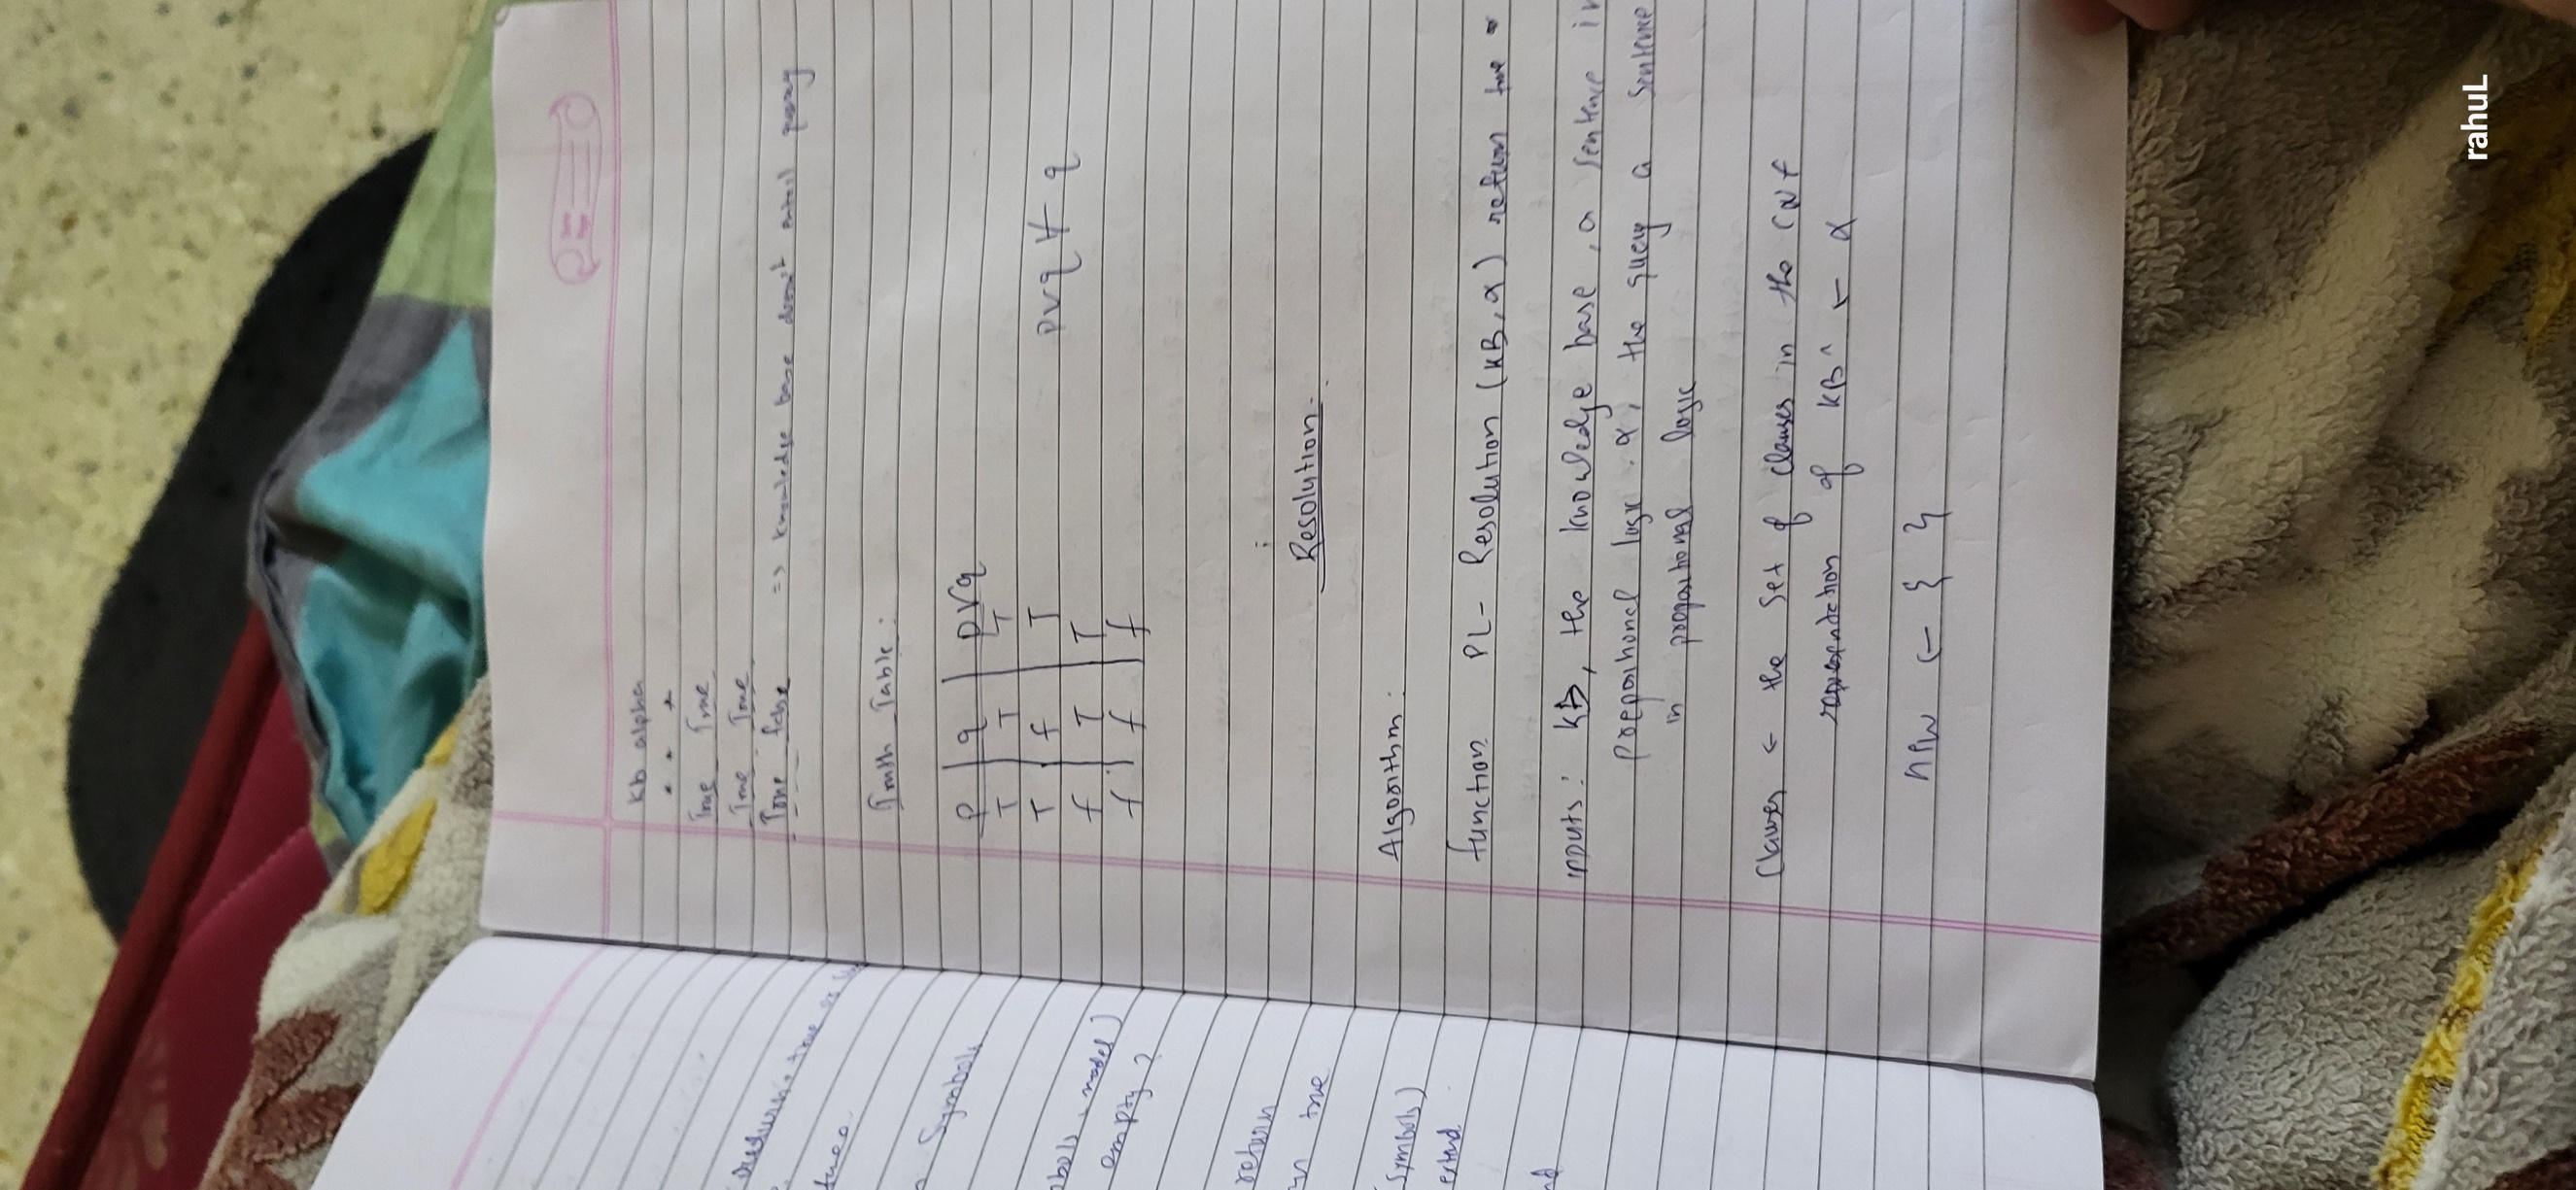 Kb alpha
* * * *
True True
True True
True false => knowledge base doesn't entail query
Truth Table:
P | q | PVq
T | T | T
T | f | T
f | T | T
f | f | f
pvq ∀ q
Resolution.
Algorithm:
function PL - Resolution (KB, α) return true or
inputs: KB, the knowledge base, a sentence in
propositional logic α, the query a sentence
in propositional logic
Clauses ← the set of clauses in the CNF
of KB ^ ¬ α
new ← { }
true
Symbols
model)
empty ?
return
true
Symbols)
rahuL